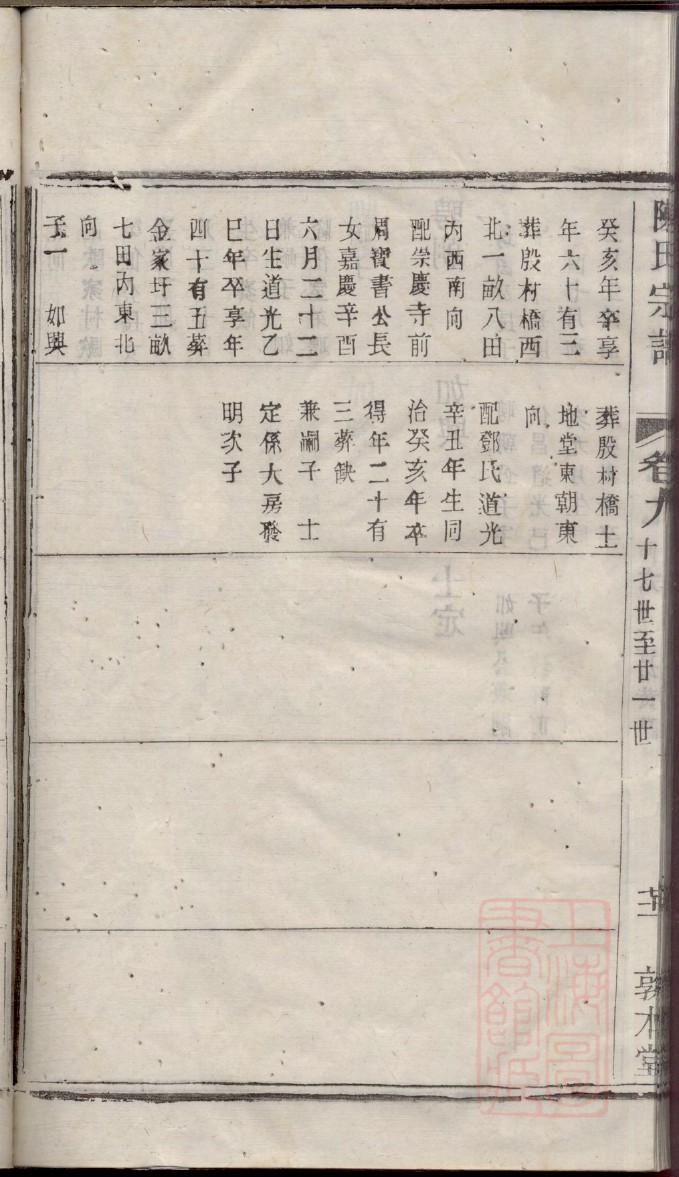 陳氏宗譜
卷九
十七世至廿一世
敦本堂
癸亥年卒享
年六十有三
葬殷村橋西
北一畝八田
內西南向
配崇慶寺前
周寶書公長
女嘉慶辛酉
六月二十二
日生道光乙
巳年卒享年
四十有五葬
金家圩三畝
七田內東北
向
子一 如興
葬殷村橋土
地堂東朝東
向
配鄧氏道光
辛丑年生同
治癸亥年卒
得年二十有
三葬缺
兼嗣子 士
定係大房發
明次子
上海圖書館藏